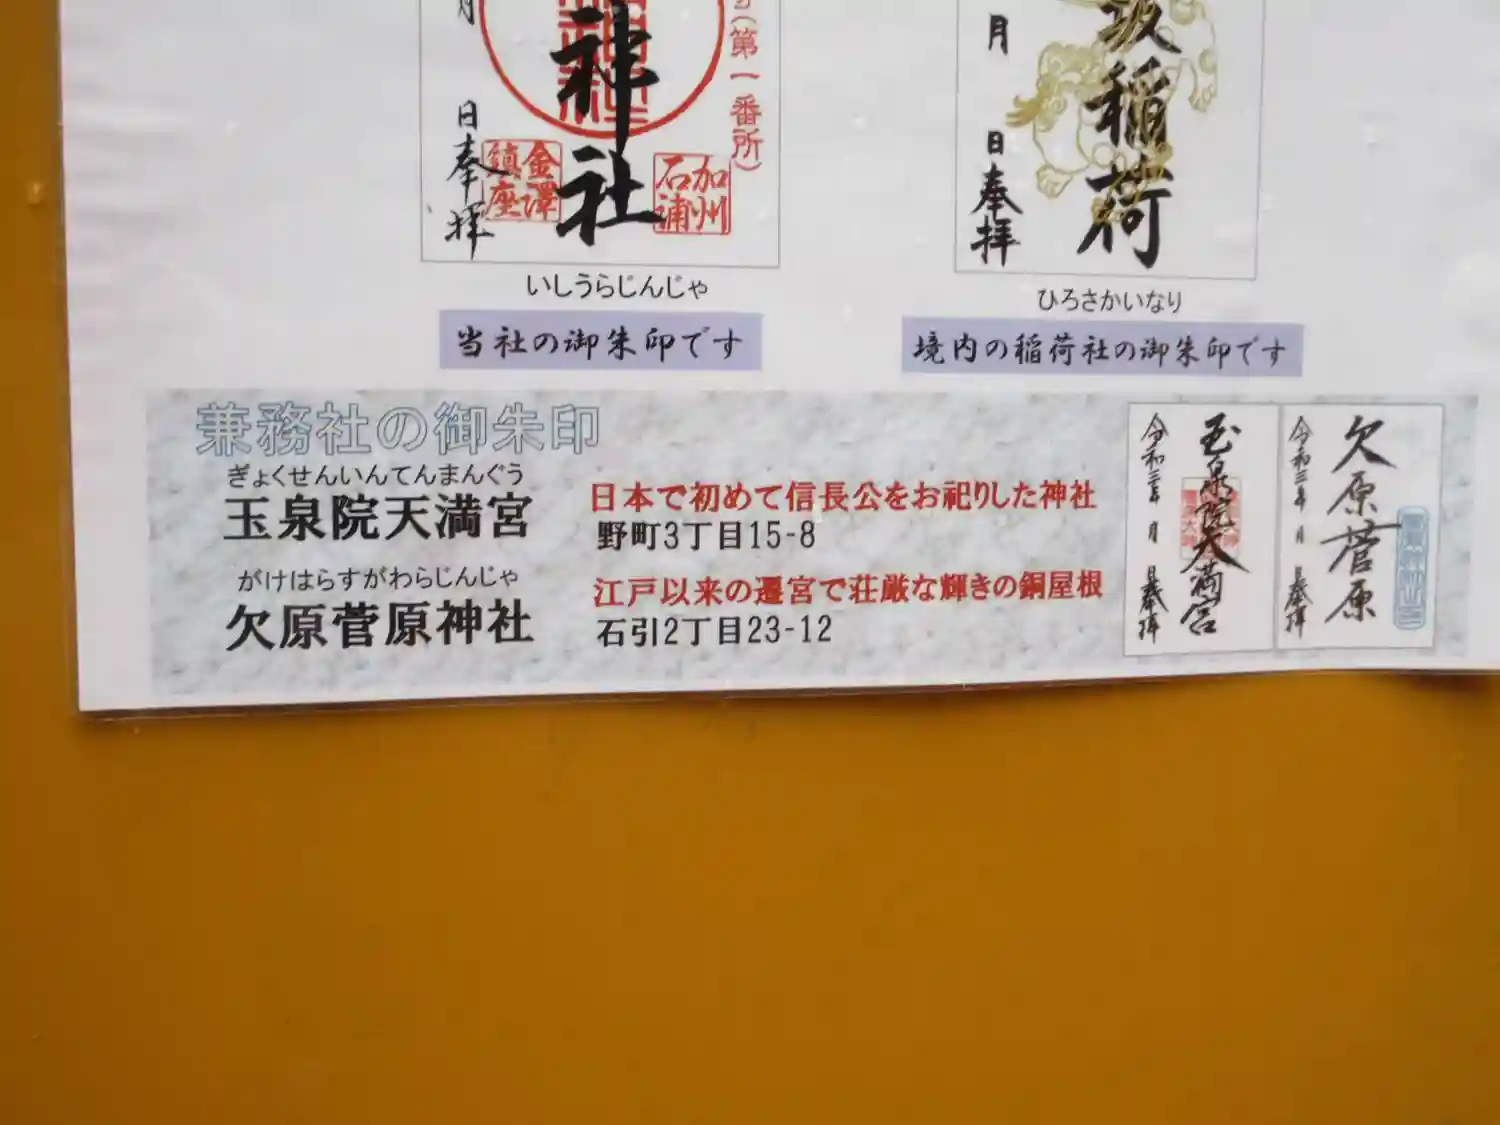 神社
(第一番所)
月
日
奉拝
金澤
鎮座
加州
石浦
いしうらじんじゃ
当社の御朱印です
坂稲荷
月
日
奉拝
ひろさかいなり
境内の稲荷社の御朱印です
兼務社の御朱印
ぎょくせんいんてんまんぐう
玉泉院天満宮
日本で初めて信長公をお祀りした神社
野町3丁目15-8
がけはらすがわらじんじゃ
欠原菅原神社
江戸以来の遷宮で荘厳な輝きの銅屋根
石引2丁目23-12
玉泉院天満宮
令和三年 月 日 奉拝
欠原菅原
令和三年 月 日 奉拝